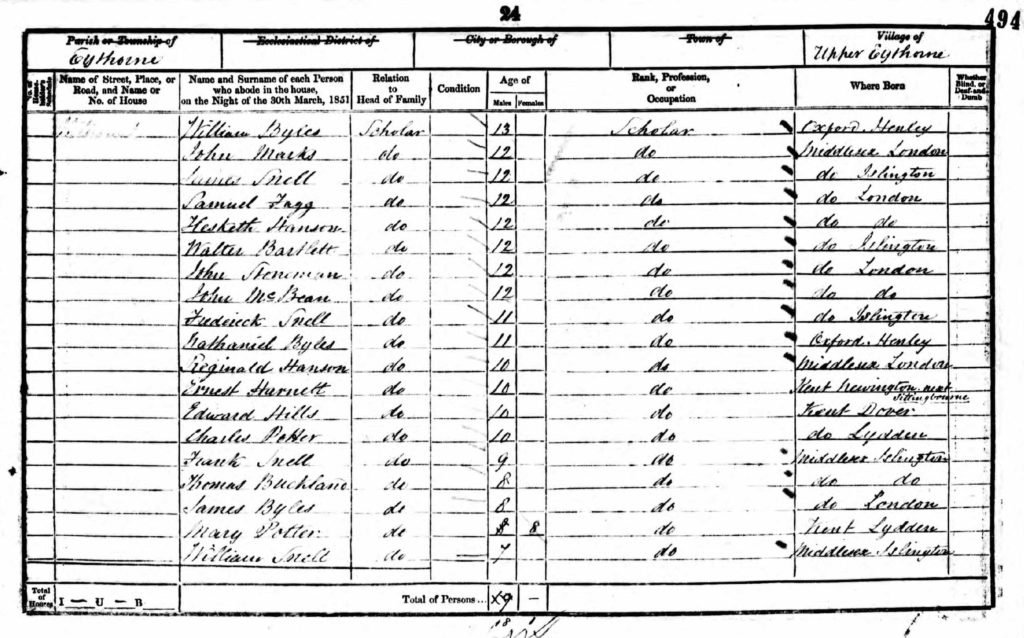 24
494
Parish or Township of Ecclesiastical District of City or Borough of Town of Village of
Eythorne Upper Eythorne
Name of Street, Place, or Road, and Name or No. of House Name and Surname of each Person who abode in the house, on the Night of the 30th March, 1851 Relation to Head of Family Condition Age of Males Females Rank, Profession, or Occupation Where Born Whether Blind, or Deaf-and-Dumb
William Byles Scholar 13 Scholar Oxford Henley
John Marks do 12 do Middlesex London
James Snell do 12 do do Islington
Samuel Fagg do 12 do do London
Hesketh Hanson do 12 do do do
Walter Bartlett do 12 do do Islington
John Stoneman do 12 do do London
John McBean do 12 do do do
Frederick Snell do 11 do do Islington
Nathaniel Byles do 11 do Oxford Henley
Reginald Hanson do 10 do Middlesex London
Ernest Harnett do 10 do Kent Newington next Sittingbourne
Edward Hills do 10 do Kent Dover
Charles Potter do 10 do do Lydden
Frank Snell do 9 do Middlesex Islington
Thomas Buckland do 8 do do do
James Byles do 8 do do London
Mary Potter do 8 8 do Kent Lydden
William Snell do 7 do Middlesex Islington
Total of Houses I — U — B Total of Persons... 19 –
18 1